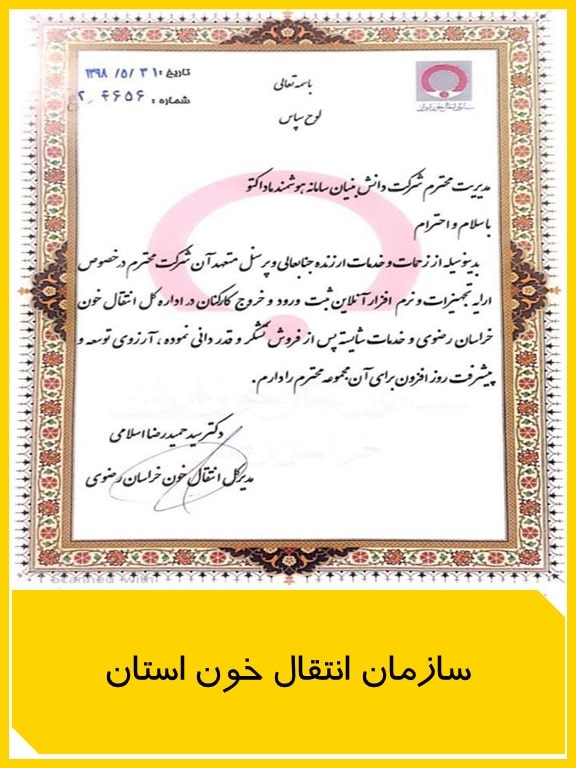 تاریخ : ۱۳۹۸/۵/۳۱
شماره : ۴۶۵۶
باسمه تعالی
لوح سپاس
سازمان انتقال خون ایران
مدیریت محترم شرکت دانش بنیان سامانه هوشمند ماداکتو
با سلام و احترام
بدینوسیله از زحمات و خدمات ارزنده جنابعالی و پرسنل متعهد آن شرکت محترم در خصوص
ارایه تجهیزات و نرم افزار آنلاین ثبت ورود و خروج کارکنان در اداره کل انتقال خون
خراسان رضوی و خدمات شایسته پس از فروش تشکر و قدردانی نموده ، آرزوی توسعه و
پیشرفت روز افزون برای آن مجموعه محترم را دارم .
دکتر سید حمیدرضا اسلامی
مدیرکل انتقال خون خراسان رضوی
Scanned with
سازمان انتقال خون استان